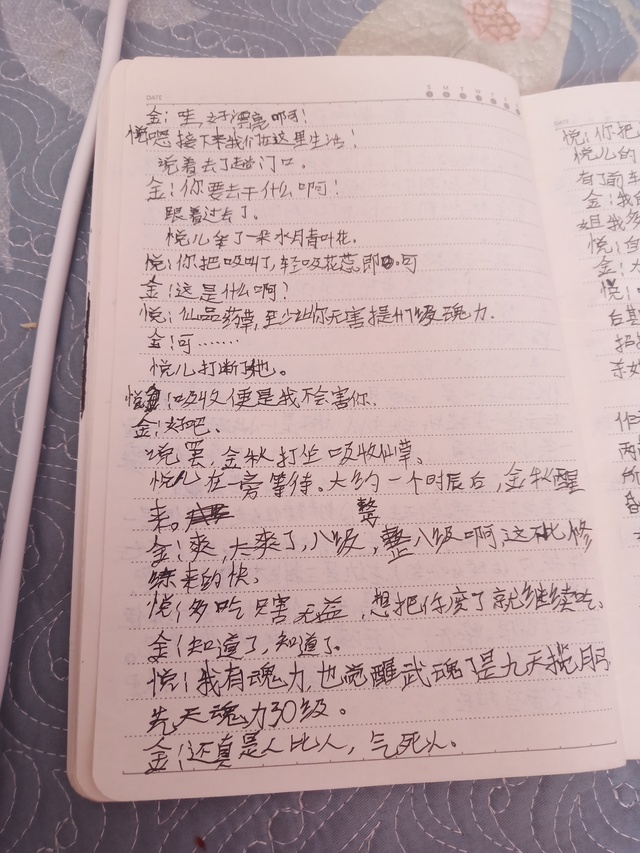 DATE
S M T W T
金:哇,好漂亮啊!
悦:嗯接下来我们在这里生活!
说着去了趟门口。
金:你要去干什么啊!
跟着过去了。
悦儿拿了一朵水月青叶花。
悦:你把吸叫了,轻吸花蕊即可
金:这是什么啊?
悦:仙品药草,至少让你无害提升级魂力.
金:可……
悦儿打断了他。
悦:吸收便是我不会害你.
金:好吧.
说罢,金秋打坐吸收仙草.
悦儿在一旁等待。大约一个时辰后,金秋醒
来。
金:爽,太爽了,八级,整整八级啊,这不比修
练来的快.
悦:多吃只害无益,想把你废了就继续吃.
金:知道了,知道了.
悦:我有魂力,也觉醒武魂了是九天揽月
先天魂力30级。
金:还真是人比人,气死人。
DATE
悦:你把
悦儿的
有了前
金:我
姐我多
悦:
金:
悦:
后
招
杀
作
两
所